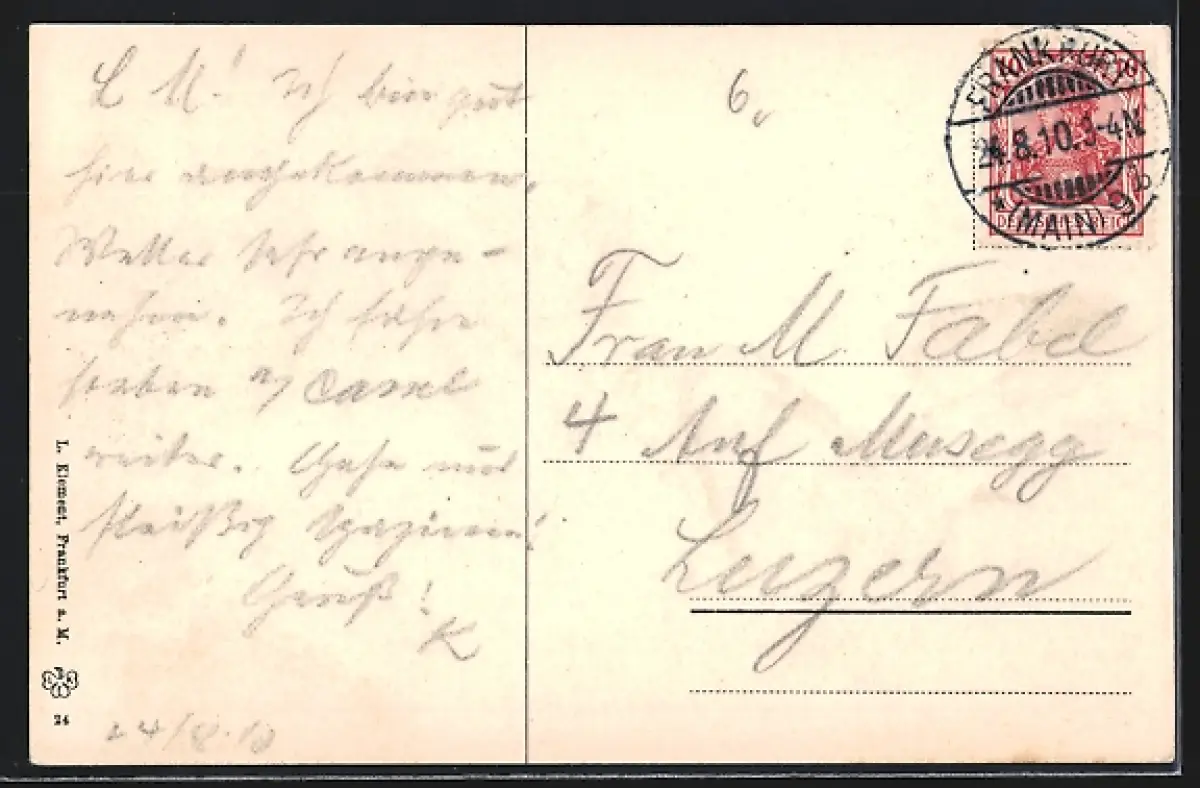 L M! Ich bin gut
hier angekommen.
Wetter sehr ange-
nehm. Ich fahre
soeben n/ Cassel
weiter. Gehe nur
fleißig spazieren!
Gruß!
K
24/8.10
L. Klement, Frankfurt a. M.
24
6.
FRANKFURT
24.8.10.3-4N
* (MAIN) 9 b
DEUTSCHES REICH
Frau M Fabel
4 Auf Musegg
Luzern